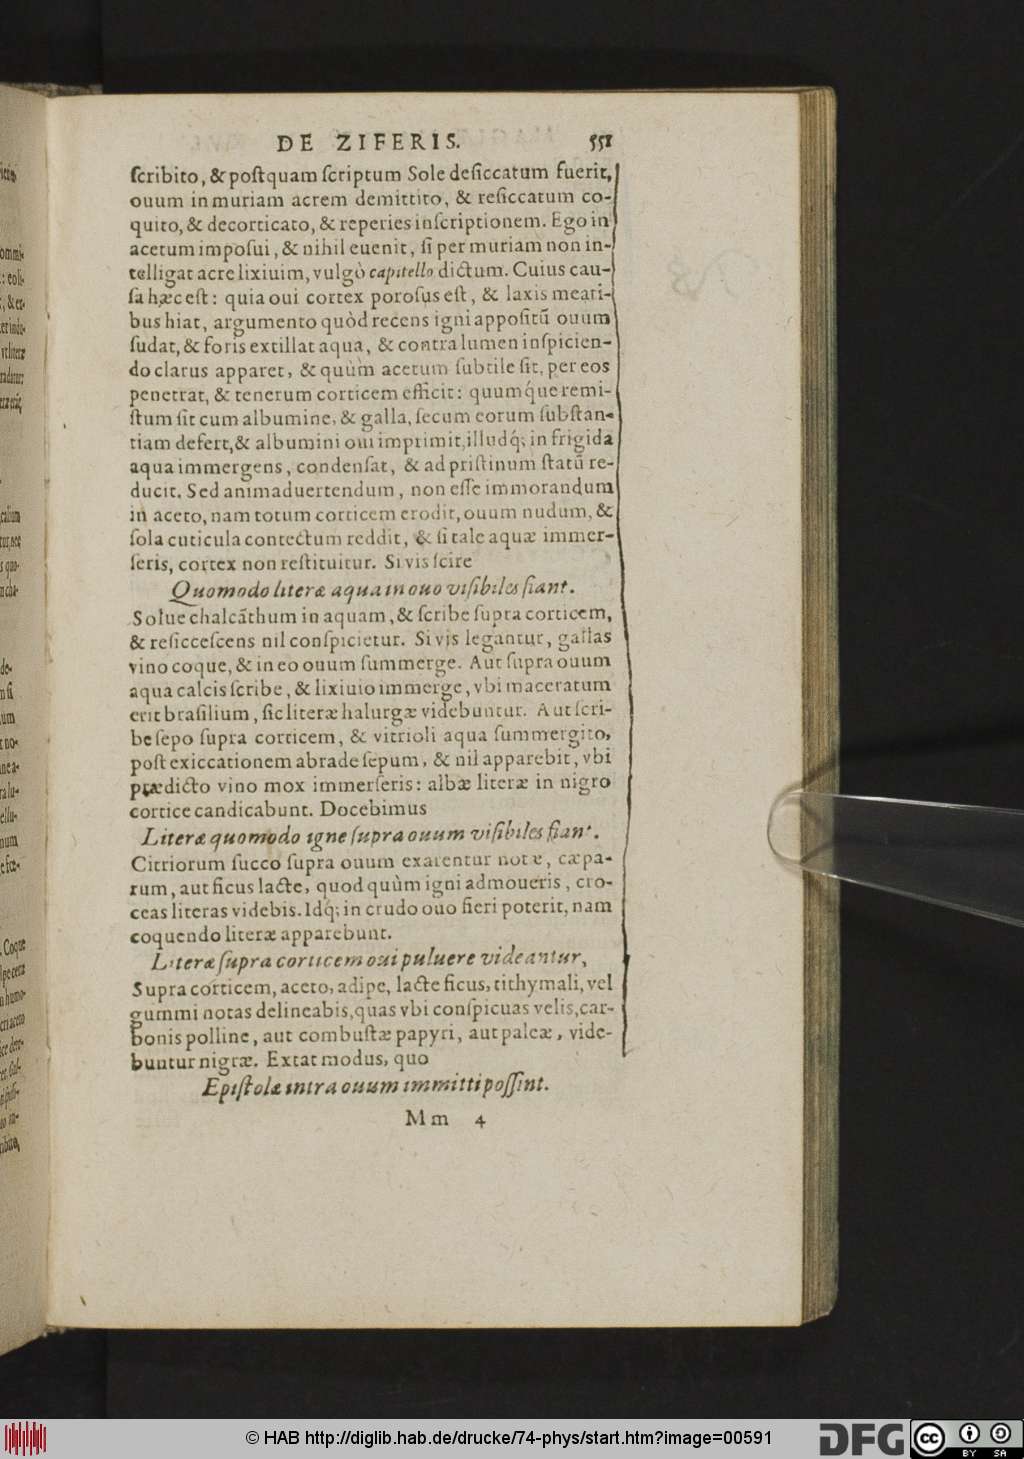 DE ZIFERIS. 551
ſcribito, & poſtquam ſcriptum Sole deſiccatum fuerit,
ouum in muriam acrem demittito, & reſiccatum co-
quito, & decorticato, & reperies inſcriptionem. Ego in
acetum impoſui, & nihil euenit, ſi per muriam non in-
telligat acre lixiuim, vulgò capitello dictum. Cuius cau-
ſa hæc eſt: quia oui cortex poroſus eſt, & laxis meati-
bus hiat, argumento quòd recens igni appoſitū ouum
ſudat, & foris extillat aqua, & contra lumen inſpicien-
do clarus apparet, & quùm acetum ſubtile ſit, per eos
penetrat, & tenerum corticem efficit: quumq́ue remi-
ſtum ſit cum albumine, & galla, ſecum eorum ſubſtan-
tiam defert, & albumini oui imprimit, illudq́; in frigida
aqua immergens, condenſat, & ad priſtinum ſtatū re-
ducit. Sed animaduertendum, non eſſe immorandum
in aceto, nam totum corticem erodit, ouum nudum, &
ſola cuticula contectum reddit, & ſi tale aquæ immer-
ſeris, cortex non reſtituitur. Si vis ſcire
Quomodo literæ aqua in ouo viſibiles fiant.
Solue chalcāthum in aquam, & ſcribe ſupra corticem,
& reſicceſcens nil conſpicietur. Si vis legantur, gallas
vino coque, & in eo ouum ſummerge. Aut ſupra ouum
aqua calcis ſcribe, & lixiuio immerge, vbi maceratum
erit braſilium, ſic literæ halurgæ videbuntur. Aut ſcri-
be ſepo ſupra corticem, & vitrioli aqua ſummergito,
poſt exiccationem abrade ſepum, & nil apparebit, vbi
prædicto vino mox immerſeris: albæ literæ in nigro
cortice candicabunt. Docebimus
Literæ quomodo igne ſupra ouum viſibiles fiant.
Citriorum ſucco ſupra ouum exarentur notæ, cæpa-
rum, aut ficus lacte, quod quùm igni admoueris, cro-
ceas literas videbis. Idq́; in crudo ouo fieri poterit, nam
coquendo literæ apparebunt.
Literæ ſupra corticem oui puluere videantur,
Supra corticem, aceto, adipe, lacte ficus, tithymali, vel
gummi notas delineabis, quas vbi conſpicuas velis, car-
bonis polline, aut combuſtæ papyri, aut paleæ, vide-
buntur nigræ. Extat modus, quo
Epiſtolæ intra ouum immitti poſſint.
Mm 4
© HAB http://diglib.hab.de/drucke/74-phys/start.htm?image=00591
DFG
cc BY SA